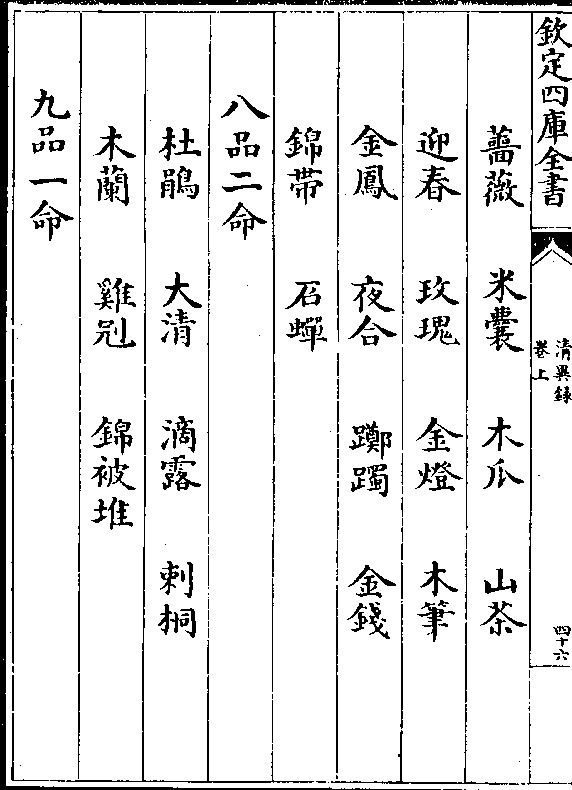 欽定四庫全書
清異錄
卷上
四十六
薔薇 米囊 木瓜 山茶
迎春 玫瑰 金燈 木筆
金鳳 夜合 躑躅 金錢
錦帶 石蟬
八品二命
杜鵑 大清 滴露 刺桐
木蘭 雞冠 錦被堆
九品一命